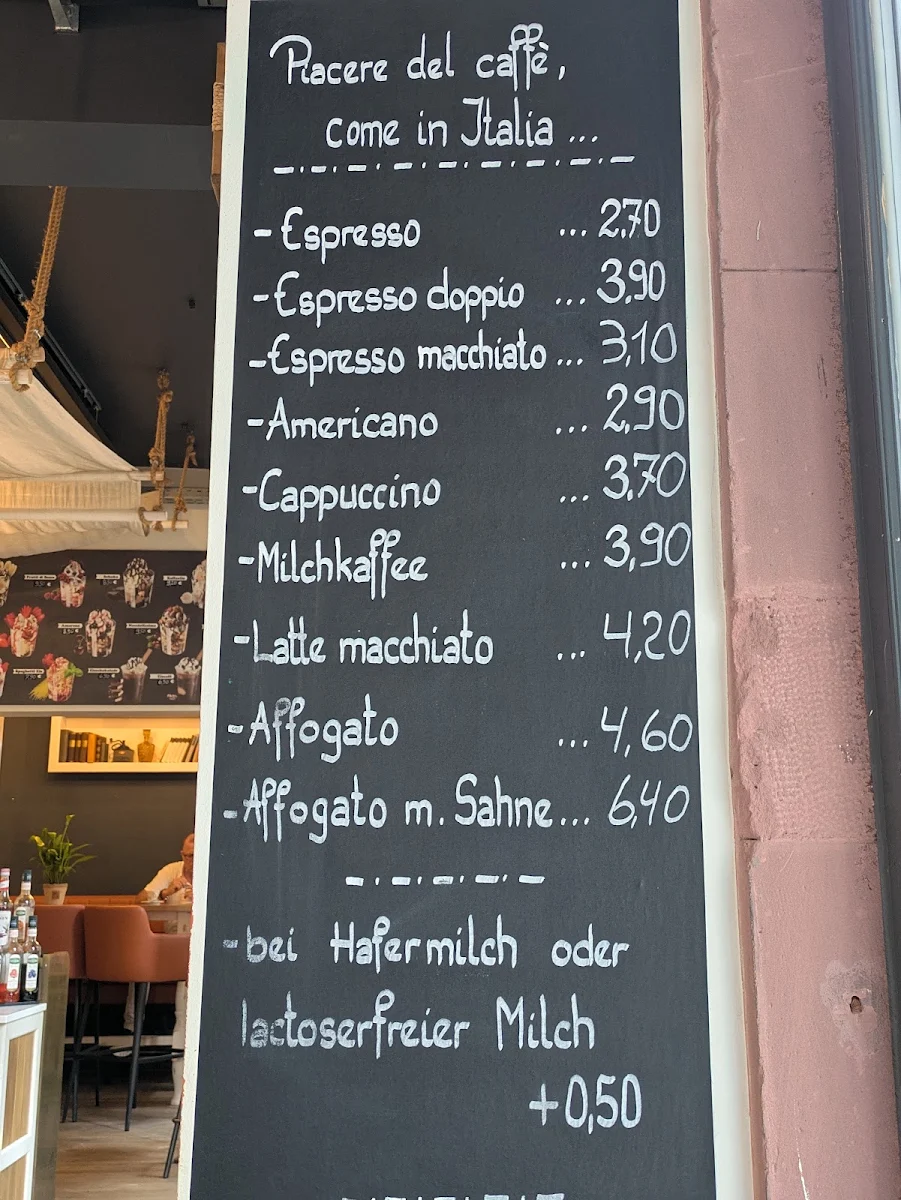 Piacere del caffè,
come in Italia ...
- Espresso ... 2,70
- Espresso doppio ... 3,90
- Espresso macchiato ... 3,10
- Americano ... 2,90
- Cappuccino ... 3,70
- Milchkaffee ... 3,90
- Latte macchiato ... 4,20
- Affogato ... 4,60
- Affogato m. Sahne ... 6,40
- bei Hafermilch oder
lactoserfreier Milch
+0,50